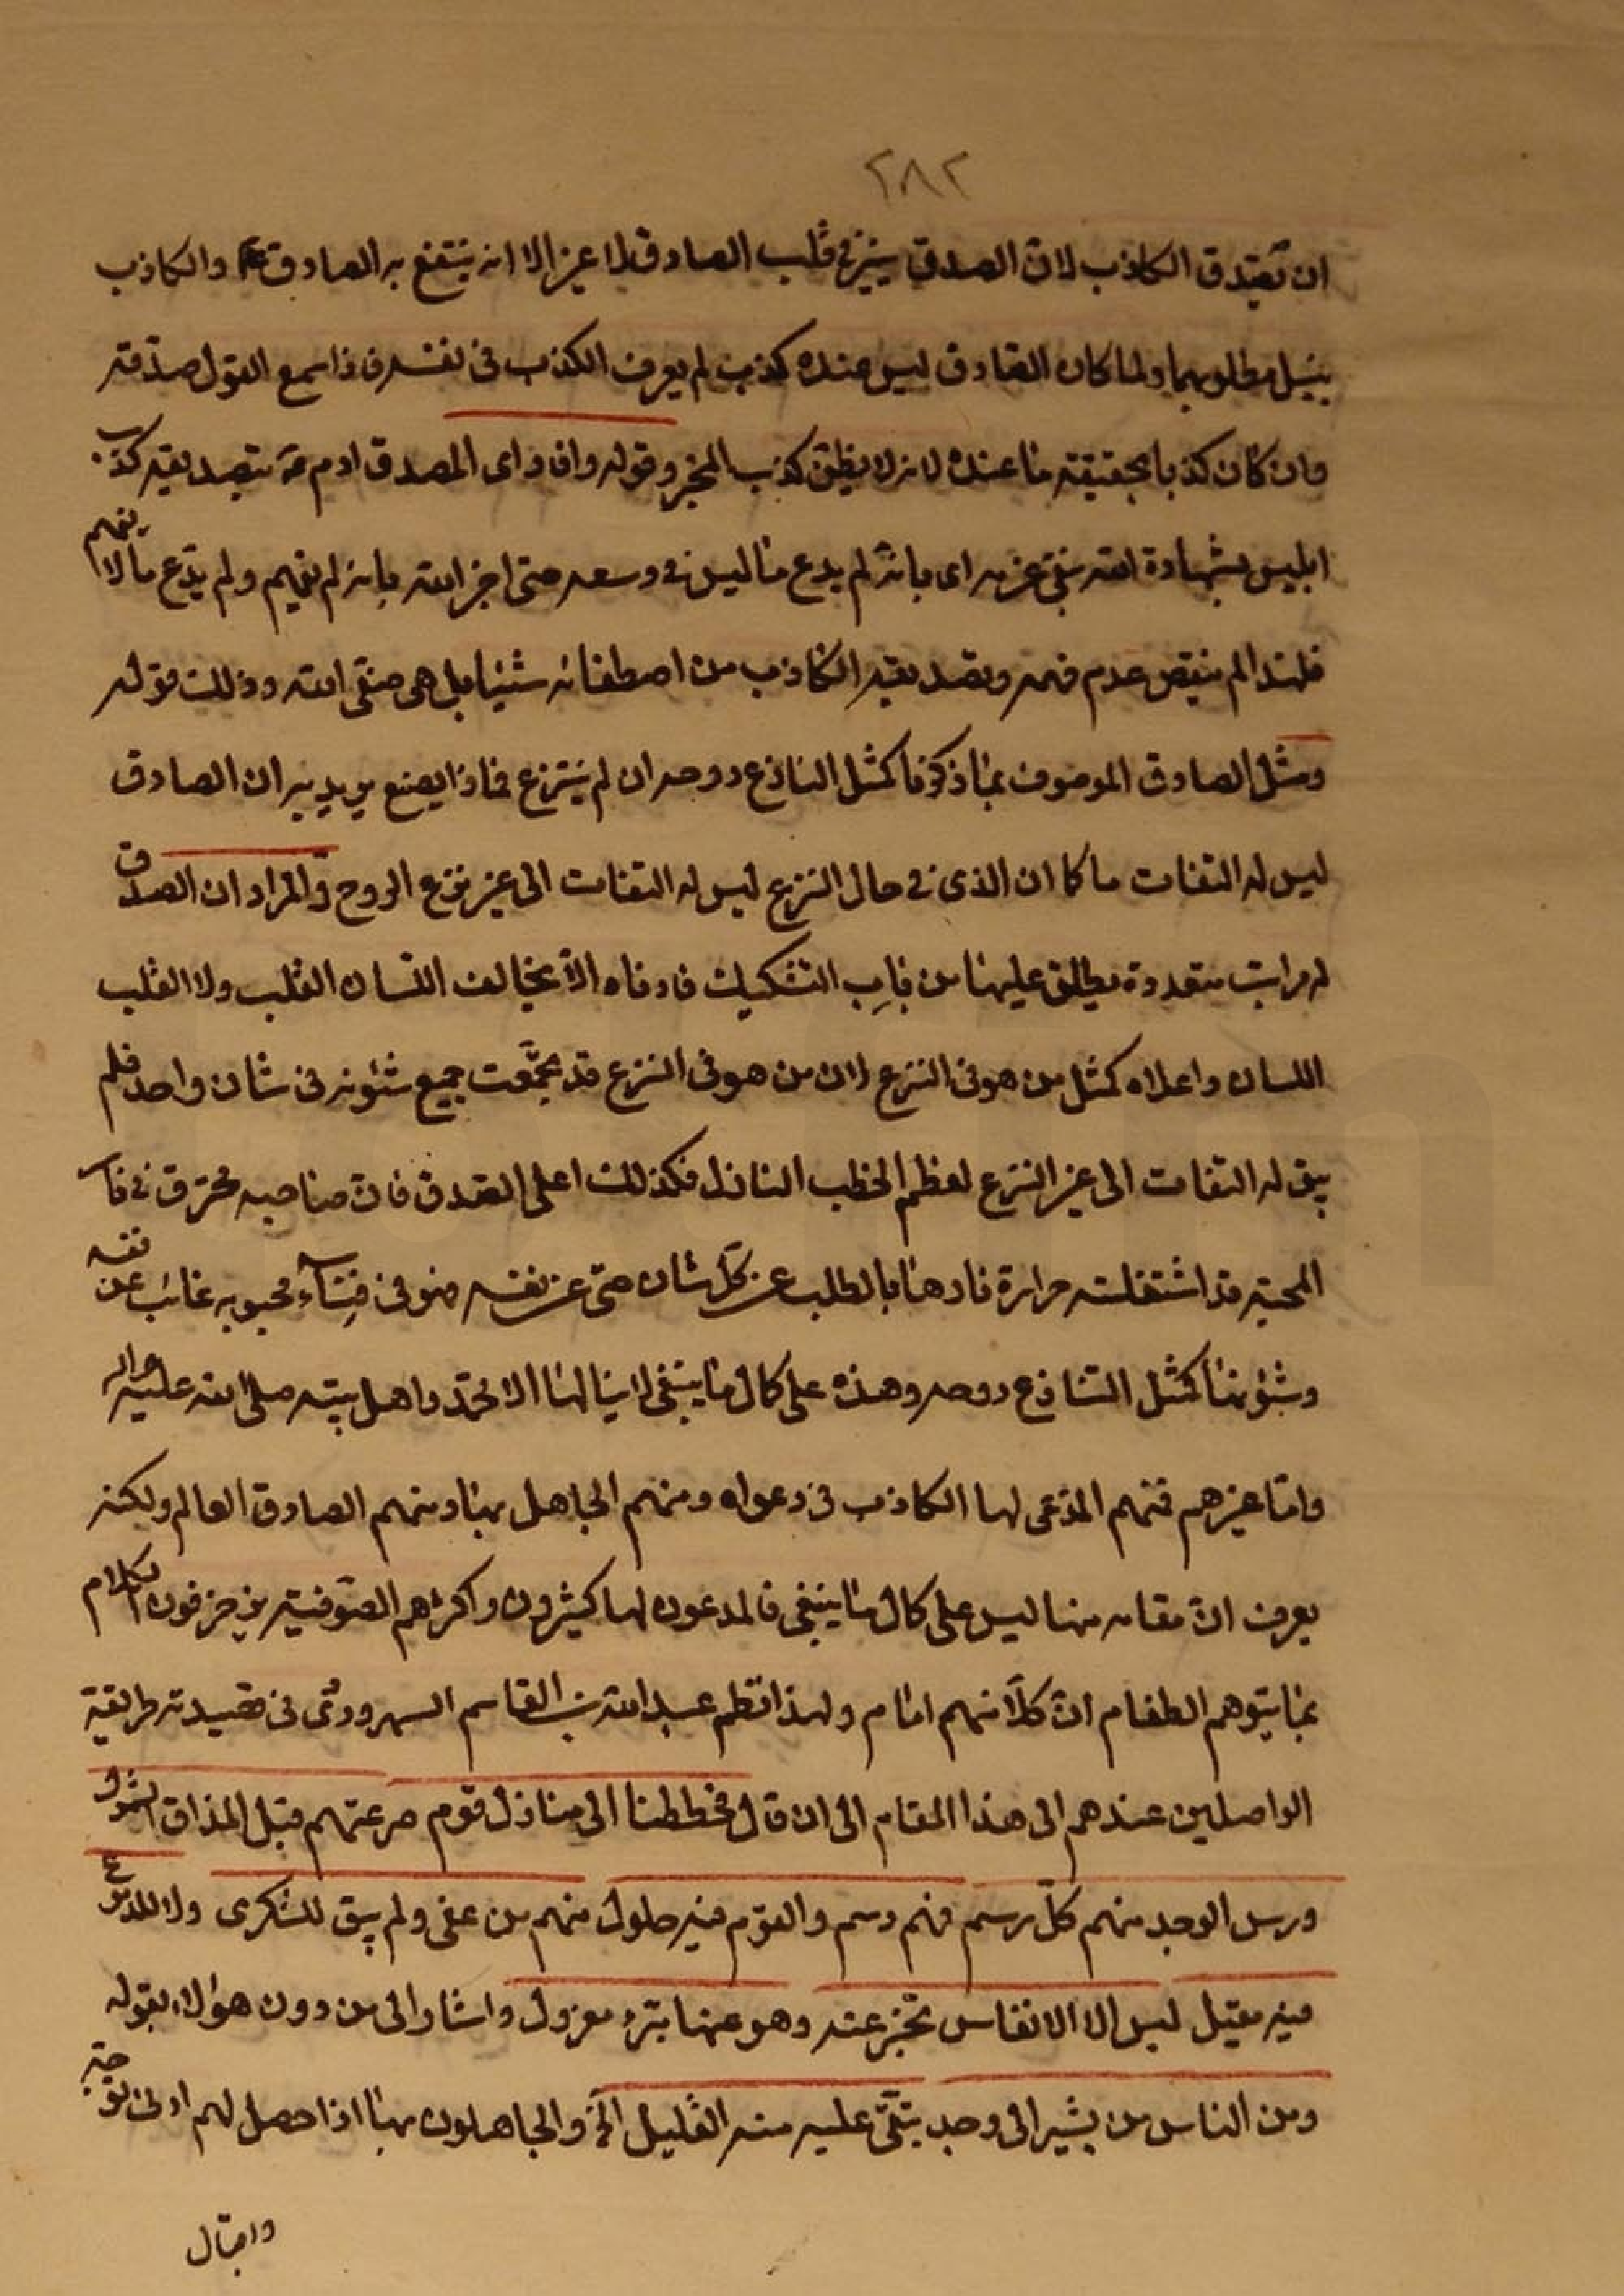 ٢٨٢
ان تصدق الكاذب لان الصدق ينير فى قلب الصادق لا غير الا انه ينتفع به الصادق والكاذب
بنيل مطلوبهما ولما كان الصادق ليس عنده كذب لم يعرف الكذب فى نفسه فاذا سمع القول صدقه
وان كان كذبا بحقيقة ما عنده لانه لا يظن كذب المخبر وقوله وافاد اى المصدق ادم ع بتصديقه كذب
ابليس بشهادة الله بنفى عزمه اى بانه لم يدع ما ليس فى وسعه حتى اخبر الله بانه لم يفهم ولم يدع ما لا يفهم
فلهذا لم ينقص عدم فهمه وتصديقه الكاذب من اصطفائه شيئا بل هى صفى الله وذلك قوله
ومثل الصادق الموصوف بما ذكرنا كمثل النازع روحه ان لم ينتزع فماذا يصنع يريد به ان الصادق
ليس له التفات ما كما ان الذى فى حال النزع ليس له التفات الى غير نزع الروح والمراد ان الصدق
له مراتب متعددة يطلق عليها من باب التشكيك فادناه الا يخالف اللسان القلب ولا القلب
اللسان واعلاه كمثل من هو فى النزع لان من هو فى النزع قد تجمعت جميع شئونه فى شان واحد فلم
يبق له التفات الى غير النزع لعظم الخطب النازل فكذلك اعلى الصدق فان صاحبه محترق فى نار
المحبة قد اشتغلته حرارة نارها بالطلب عن كل شان حتى عن نفسه فهو فى فناء محبوبه غائب عن نفسه
وشؤنها كمثل النازع روحه وهذه على كمال ما ينبغى لا ينالها الا محمد واهل بيته صلى الله عليه واله
واما غيرهم فمنهم المدعى لها الكاذب فى دعواه ومنهم الجاهل بها ومنهم الصادق العالم ولكنه
يعرف ان مقامه منها ليس على كمال ما ينبغى فالمدعون لها كثيرون واكثرهم الصوفية يزخرفون الكلام
بما يتوهم الطغام ان كلا منهم امام ولهذا نظم عبد الله بن القاسم السهروردى فى قصيدته طريقة
الواصلين عندهم الى هذا المقام الى ان قال فحططنا الى منازل قوم صرعتهم قبل المذاق الشمول
درس الوجد منهم كل رسم فهم رسم والقوم فيه حلول منهم من عفى ولم يبق للشكوى ولا للدموع
فيه مقيل ليس الا الانفاس تخبر عنه وهو عنها مبرء معزول واشار الى من دون هؤلاء بقوله
ومن الناس من يشير الى وجد تبقى عليه منه القليل الخ والجاهلون بها اذا حصل لهم ادنى توجه
واقبال